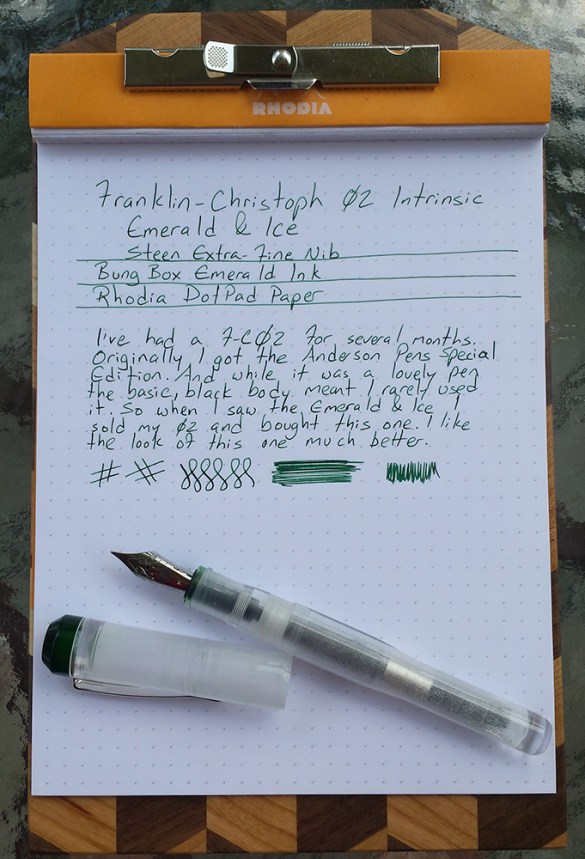 RHODIA
Franklin-Christoph Ø2 Intrinsic
Emerald & Ice
Steen Extra-Fine Nib
Bung Box Emerald Ink
Rhodia DotPad Paper
I've had a F-CØ2 for several months.
Originally I got the Anderson Pens Special
Edition. And while it was a lovely pen
the basic, black body meant I rarely used
it. So when I saw the Emerald & Ice I
sold my Ø2 and bought this one. I like
the look of this one much better.